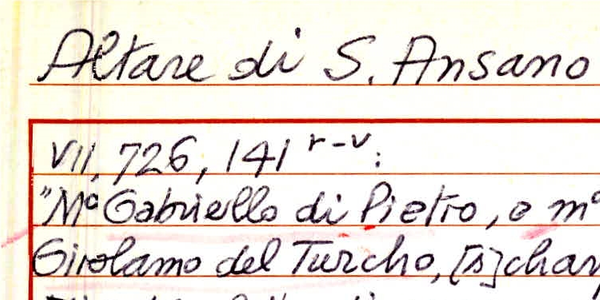 Altare di S. Ansano
VII, 726, 141 r-v:
"Mº Gabriello di Pietro, e mº
Girolamo del Turcho, [s]char